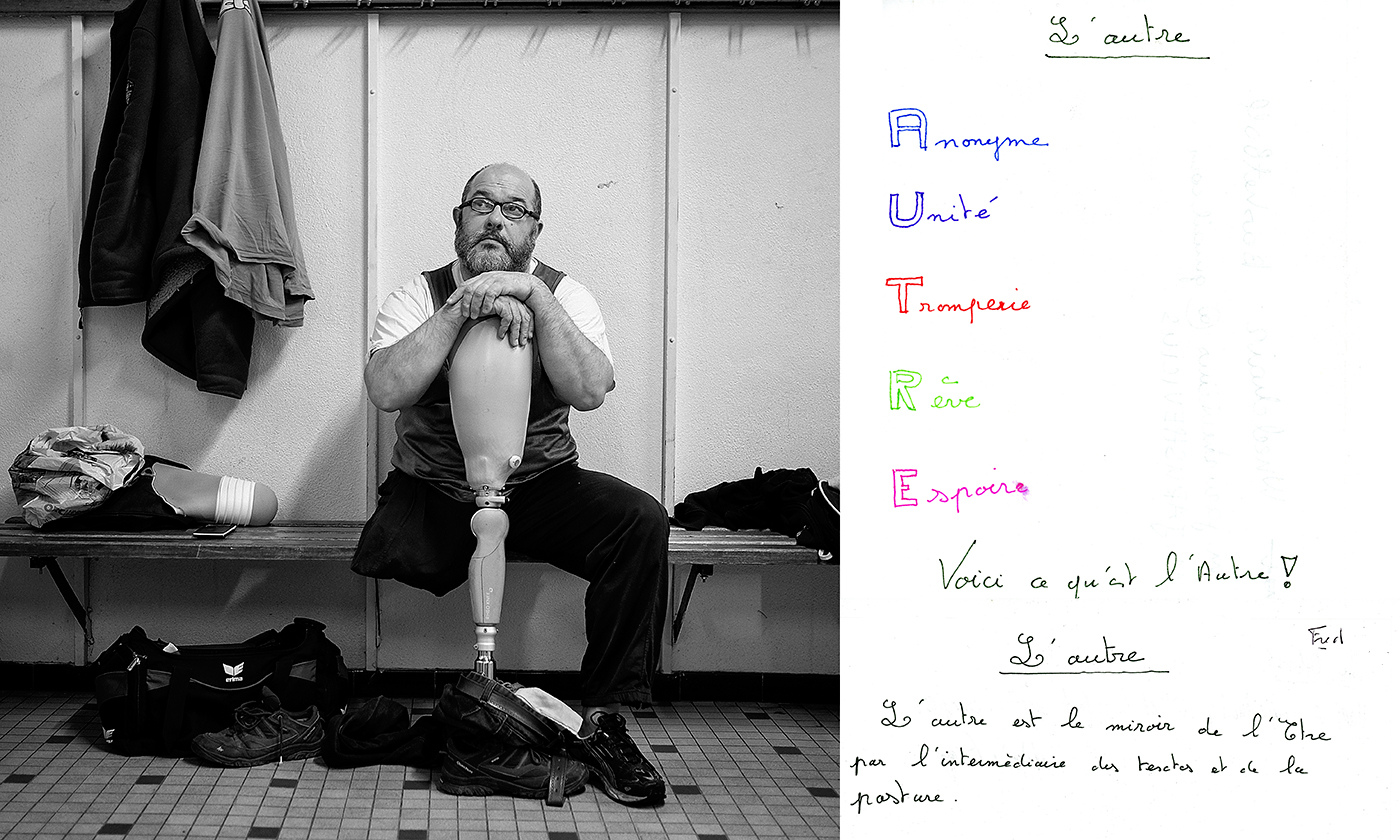 erima
L'autre
Anonyme
Unité
Tromperie
Rêve
Espoire
Voici ce qu'est l'Autre !
L'autre
L'autre est le miroir de l'Être
par l'intermèdiaire des et de la
posture.